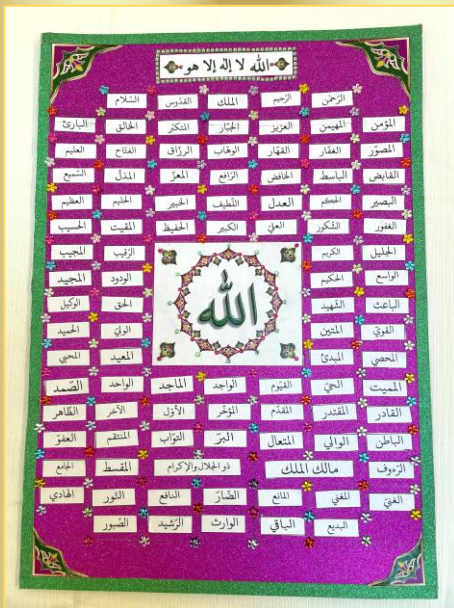 الله لا إله إلا هو
الرّحمن الرّحيم الملك القدّوس السّلام
المؤمن المهيمن العزيز الجبّار المتكبّر الخالق البارئ
المصوّر الغفّار القهّار الوهّاب الرزّاق الفتّاح العليم
القابض الباسط الخافض الرّافع المعزّ المذلّ السّميع
البصير الحكم العدل اللّطيف الخبير الحليم العظيم
الغفور الشّكور العليّ الكبير الحفيظ المقيت الحسيب
الجليل الكريم الرّقيب المجيب
الواسع الحكيم الودود المجيد
الله
الباعث الشّهيد الحقّ الوكيل
القويّ المتين الوليّ الحميد
المحصي المبدئ المعيد المحيي
المميت الحيّ القيّوم الواجد الماجد الواحد الصّمد
القادر المقتدر المقدّم المؤخّر الأوّل الآخر الظّاهر
الباطن الوالي المتعال البرّ التوّاب المنتقم العفوّ
الرّءوف مالك الملك ذو الجلال والإكرام المقسط الجامع
الغنيّ المغني المانع الضّارّ النافع النّور الهادي
البديع الباقي الوارث الرّشيد الصّبور